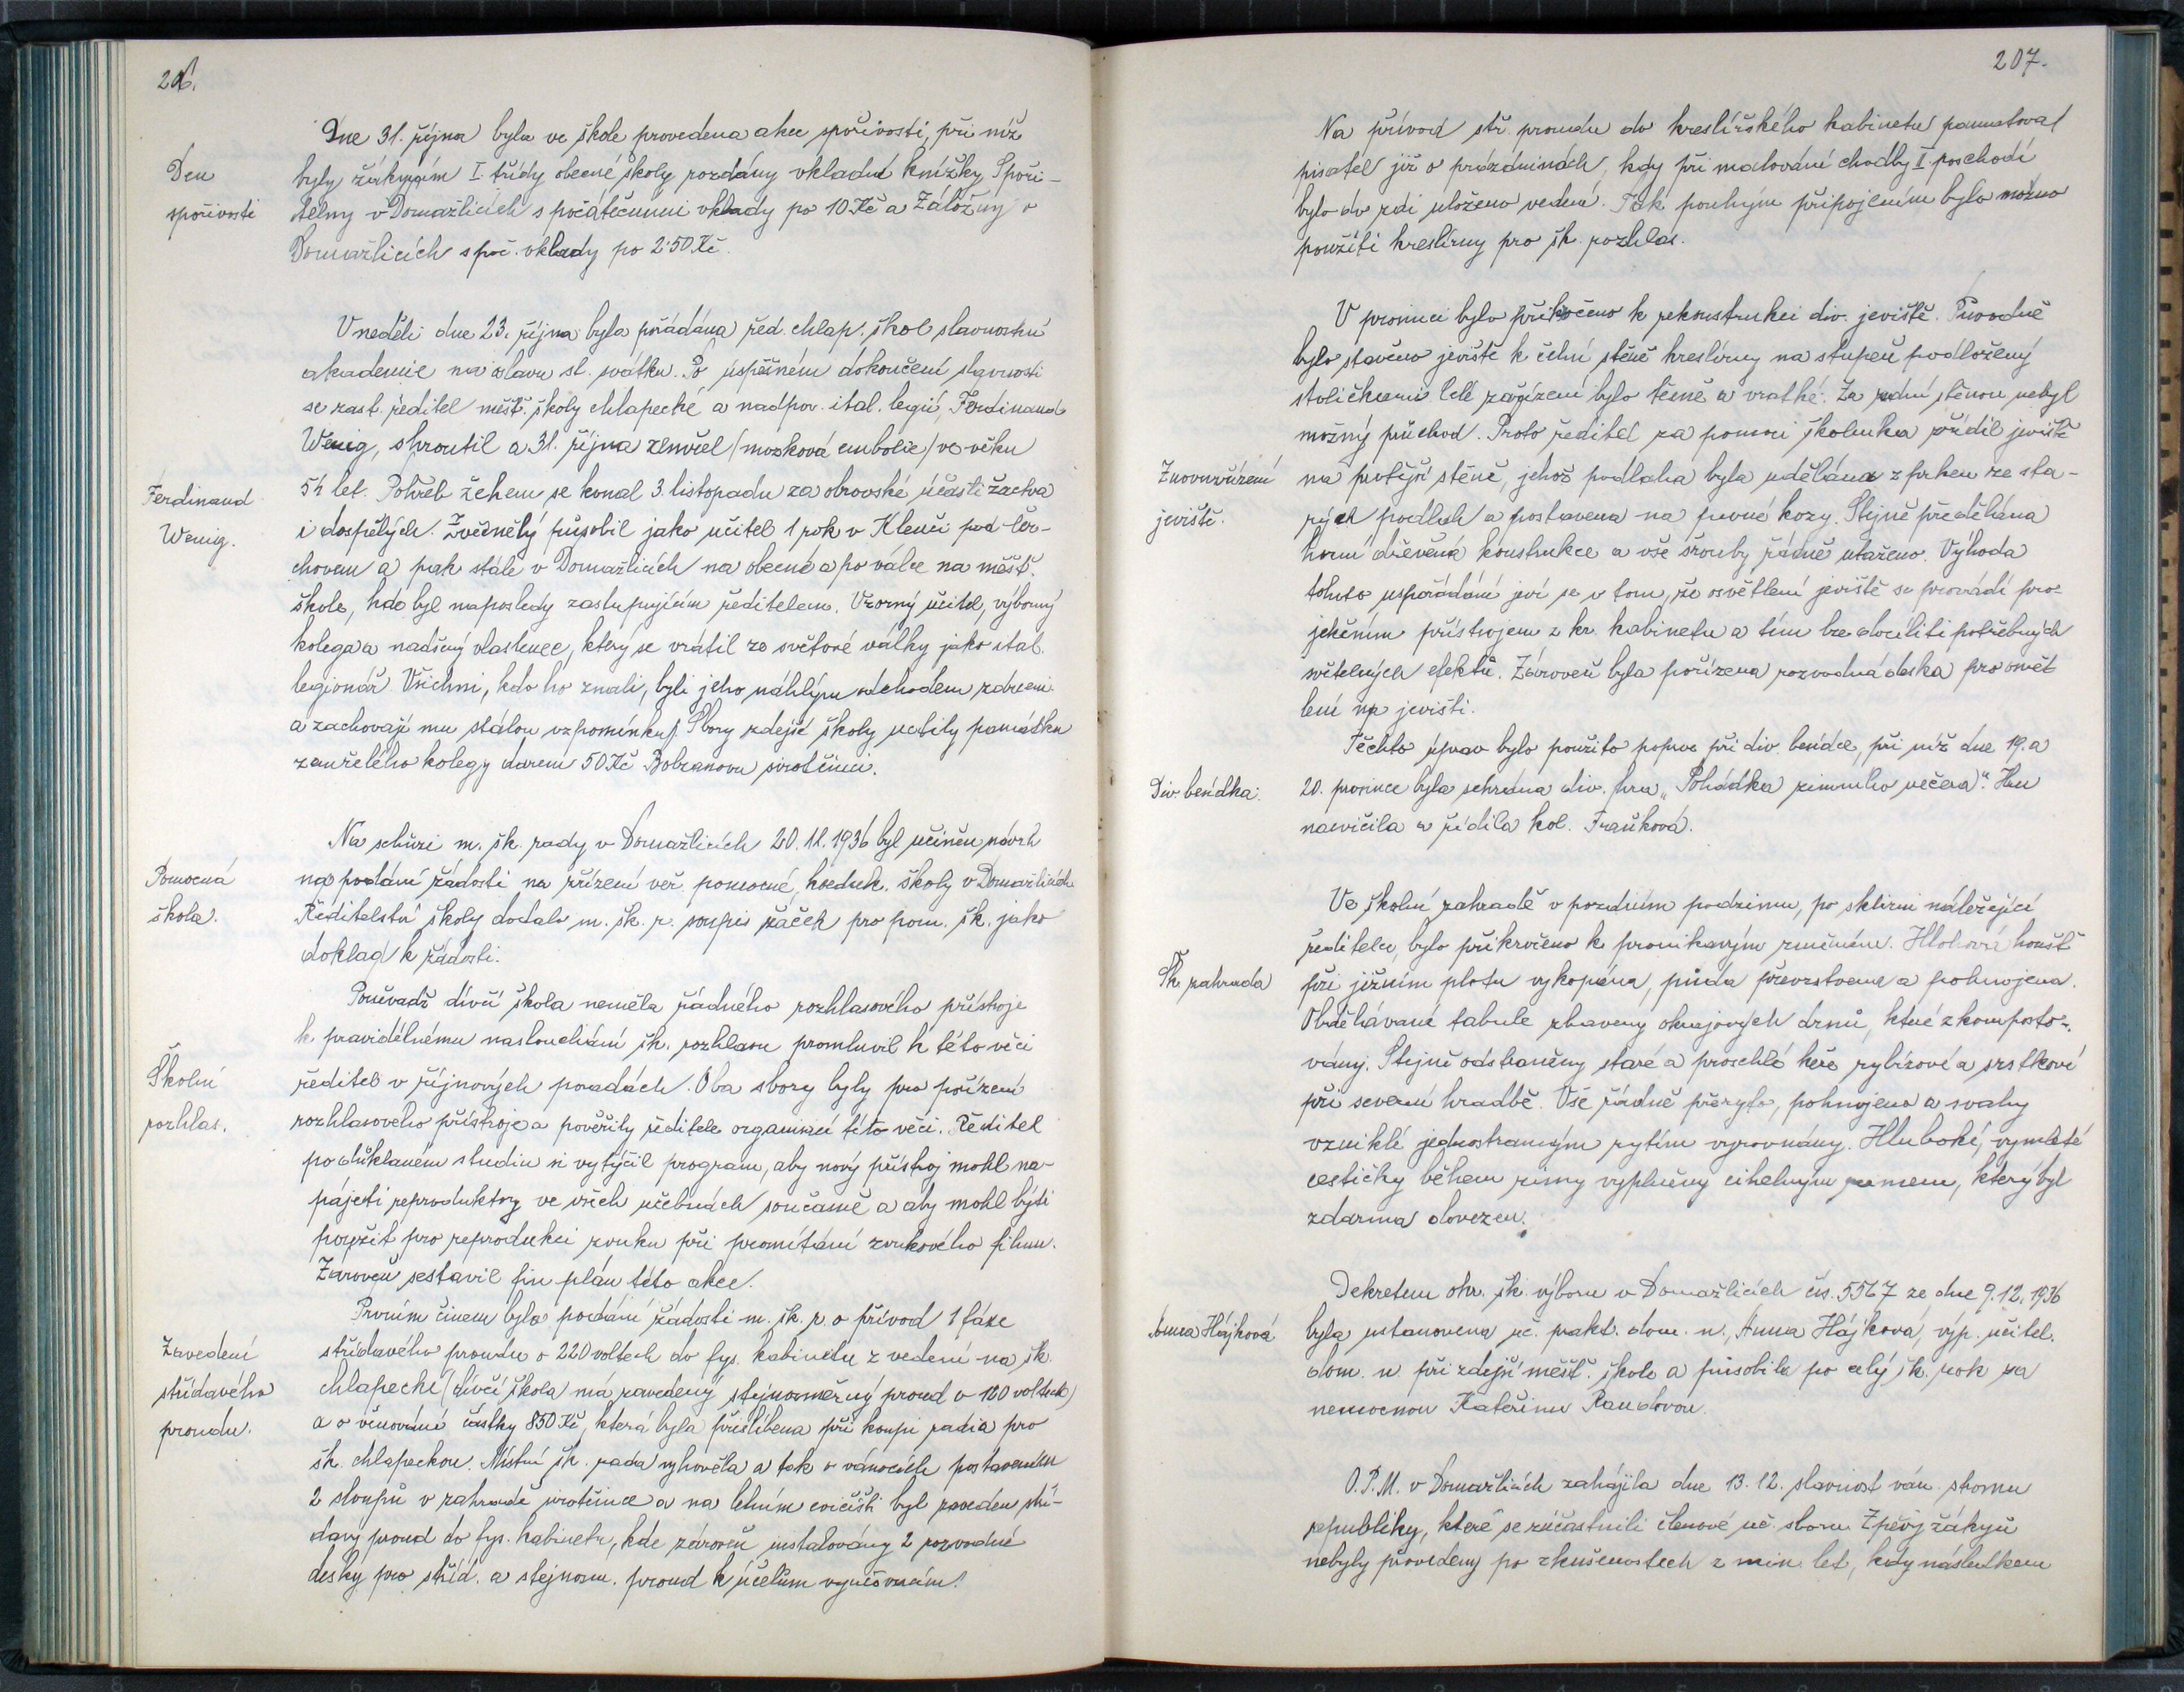 206.
Dne 31. října byla ve škole provedena akce spořivosti, při níž
Den
spořivosti
byly žákyním I. třídy obecné školy rozdány vkladní knížky Spoři-
telny v Domažlicích s počátečními vklady po 10 Kč a Záložny v
Domažlicích s poč. vklady po 2·50 Kč.
V neděli dne 23. října byla pořádána řed. chlap. škol slavnostní
akademie na oslavu st. svátku. Po úspěšném dokončení slavnosti
se zast. ředitel měšť. školy chlapecké a nadpor. ital. legií, Ferdinand
Wenig, zhroutil a 31. října zemřel (mozková embolie) ve věku
Ferdinand
Wenig.
51 let. Pohřeb žehem se konal 3. listopadu za obrovské účasti žactva
i dospělých. Zvěčnělý působil jako učitel 1 rok v Klenčí pod Čer-
chovem a pak stále v Domažlicích na obecné a po válce na měšť.
škole, kde byl naposledy zastupujícím ředitelem. Vzorný učitel, výborný
kolega a nadšený vlastenec, který se vrátil ze světové války jako ital.
legionář. Všichni, kdo ho znali, byli jeho náhlým odchodem zdrceni
a zachovají mu stálou vzpomínku. Sbory zdejší školy uctily památku
zemřelého kolegy darem 50 Kč Bobzanovu sirotčinci.
Na schůzi m. šk. rady v Domažlicích 20. 11. 1936 byl učiněn návrh
Pomocná
škola.
na podání žádosti na zřízení veř. pomocné, koeduk. školy v Domažlicích
Ředitelství školy dodalo m. šk. r. soupis žáček pro pom. šk. jako
doklad k žádosti.
Poněvadž dívčí škola neměla řádného rozhlasového přístroje
k pravidelnému naslouchání šk. rozhlasu promluvil k této věci
Školní
rozhlas.
ředitel v říjnových poradách. Oba sbory byly pro pořízení
rozhlasového přístroje a pověřily ředitele organisací této věci. Ředitel
po důkladném studiu si vytýčil program, aby nový přístroj mohl na-
pájeti reproduktory ve všech učebnách současně a aby mohl býti
použit pro reprodukci zvuku při promítání zvukového filmu.
Zároveň sestavil fin. plán této akce.
Prvním činem bylo podání žádosti m. šk. r. o přívod 1 fáze
Zavedení
střídavého
proudu.
střídavého proudu o 220 voltech do fys. kabinetu z vedení na šk.
chlapecké (dívčí škola má zavedený stejnosměrný proud o 120 voltech)
a o věnování částky 850 Kč, která byla přislíbena při koupi radia pro
šk. chlapeckou. Místní šk. rada vyhověla a tak o vánocích postavením
2 sloupů v zahradě sirotčince a na letním cvičišti byl zaveden stří-
davý proud do fys. kabinetu, kde zároveň instalovány 2 rozvodné
desky pro stříd. a stejnosm. proud k účelům vyučovacím.
207.
Na přívod stř. proudu do kreslířského kabinetu pamatoval
pisatel již o prázdninách, kdy při malování chodby II. poschodí
bylo do zdi uloženo vedení. Tak pouhým připojením bylo možno
použíti kreslírny pro šk. rozhlas.
V prosinci bylo přikročeno k rekonstrukci div. jeviště. Původně
bylo stavěno jeviště k čelní stěně kreslírny na stupeň podložený
stoličkami. Celé zařízení bylo těsné a vratké. Za zadní stěnou nebyl
možný průchod. Proto ředitel za pomoci školníka zřídil jeviště
Znovuzřízení
jeviště.
na protější stěně, jehož podlaha byla udělána z prken ze sta-
rých podlah a postavena na pevné kozy. Stejně předělána
horní dřevěná konstrukce a vše šrouby řádně utaženo. Výhoda
tohoto uspořádání jeví se v tom, že osvětlení jeviště se provádí pro-
jekčním přístrojem z kr. kabinetu a tím lze docíliti potřebných
světelných efektů. Zároveň byla pořízena rozvodná deska pro osvět
lení na jevišti.
Těchto úprav bylo použito poprvé při div. besídce, při níž dne 19. a
Div. besídka.
20. prosince byla sehrána div. hra „Pohádka zimního večera". Hru
nacvičila a řídila kol. Fraňková.
Ve školní zahradě v pozdním podzimu, po sklizni náležející
řediteli, bylo přikročeno k pronikavým změnám. Hlohová houšť
Šk. zahrada
při jižním plotu vykopána, půda převrstvena a pohnojena.
Obdělávané tabule zbaveny okrajových drnů, které zkomposto-
vány. Stejně odstraněny staré a proschlé keře rybízové a srstkové
při severní hradbě. Vše řádně přeryto, pohnojeno a svahy
vzniklé jednostranným rytím vyrovnány. Hluboké, vymleté
cestičky během zimy vyplněny cihelným rumem, který byl
zdarma dovezen.
Dekretem okr. šk. výboru v Domažlicích čís. 5567 ze dne 9. 12. 1936
Anna Hájková
byla ustanovena uč. prakt. dom. n., Anna Hájková, výp. učitel.
dom. n. při zdejší měšť. škole a působila po celý šk. rok za
nemocnou Kateřinu Randovou.
O. P. M. v Domažlicích zahájila dne 13. 12. slavnost ván. stromu
republiky, které se zúčastnili členové uč. sboru. Zpěvy žákyň
nebyly provedeny po zkušenostech z min. let, kdy následkem